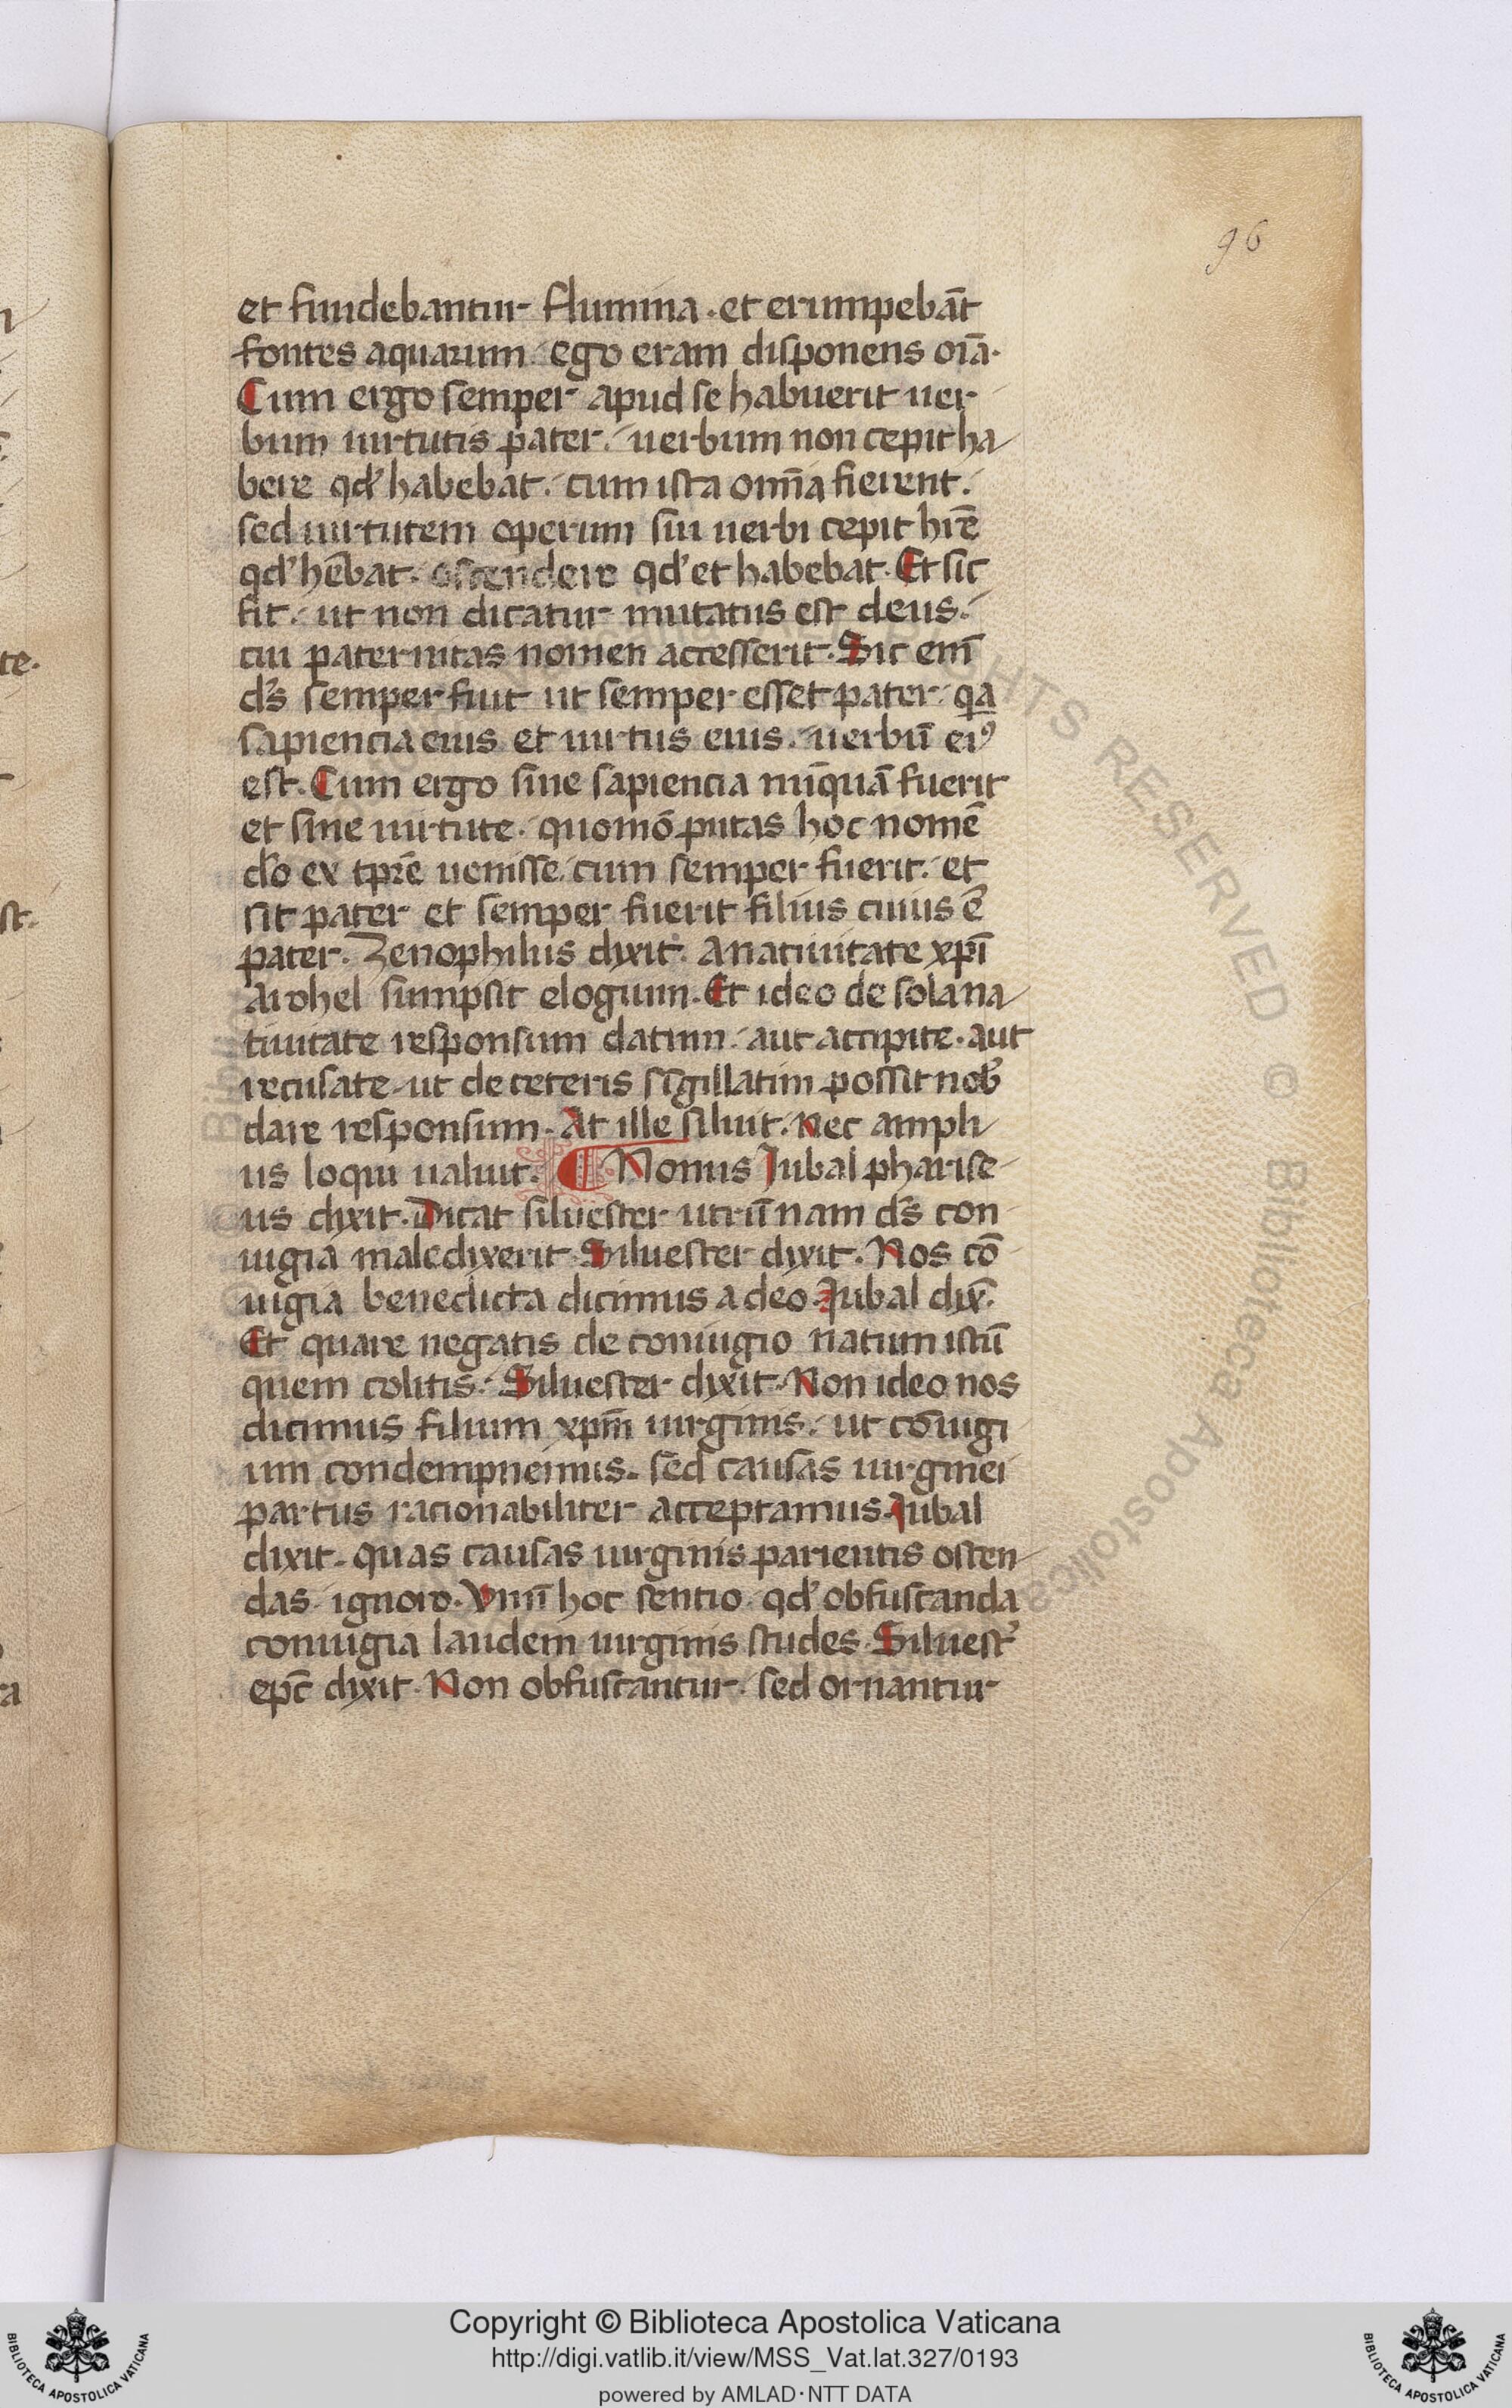 96
et fundebantur flumina · et erumpebāt
fontes aquarum · ego eram disponens oīa ·
Cum ergo semper apud se habuerit uer
bum uirtutis pater · uerbum non cepit ha
bere qd' habebat · cum ista omīa fierent ·
sed uirtutem operum sui uerbi cepit hr̄e
qd' hēbat · ostendere qd' et habebat · Et sic
fit · ut non dicatur mutatus est deus ·
cui paternitas nomen accesserit · Sic enī
ds̄ semper fuit ut semper esset pater · qa
sapiencia eius et uirtus eius · uerbū ei⁹
est · Cum ergo sine sapiencia nūquā fuerit
et sine uirtute · quomō putas hoc nomē
do ex tpr̄e uenisse · cum semper fuerit · et
sit pater et semper fuerit filius cuius ē
pater · Zenophilus dyxit · A natiuitate xpī
Arohel sumpsit elogium · Et ideo de sola na
tiuitate responsum datum · aut accipite · aut
recusate · ut de ceteris sigillatim possit nob'
dare responsum · At ille siluit · nec ampli
us loqui ualuit · ¶ Nonus Jubal pharise
us dixit · Dicat siluester utrū nam ds̄ con
iugia maledyxerit · Siluester dyxit · Nos cō
iugia benedicta dicimus a deo · Jubal dyx̄ ·
Et quare negatis de coniugio natum istū
quem colitis · Siluester dyxit · Non ideo nos
dicimus filium xpm̄ uirginis · ut cōiugi
um condempnemus · sed causas uirginei
partus racionabiliter acceptamus · Jubal
dixit · quas causas uirginis parientis osten
das ignoro · Vnū hoc sentio · qd' obfuscanda
coniugia laudem uirginis studes · Siluest'
ep̄c dixit · Non obfuscantur · sed ornantur
te.
st.
Copyright © Biblioteca Apostolica Vaticana
http://digi.vatlib.it/view/MSS_Vat.lat.327/0193
powered by AMLAD·NTT DATA
BIBLIOTECA APOSTOLICA VATICANA
BIBLIOTECA APOSTOLICA VATICANA